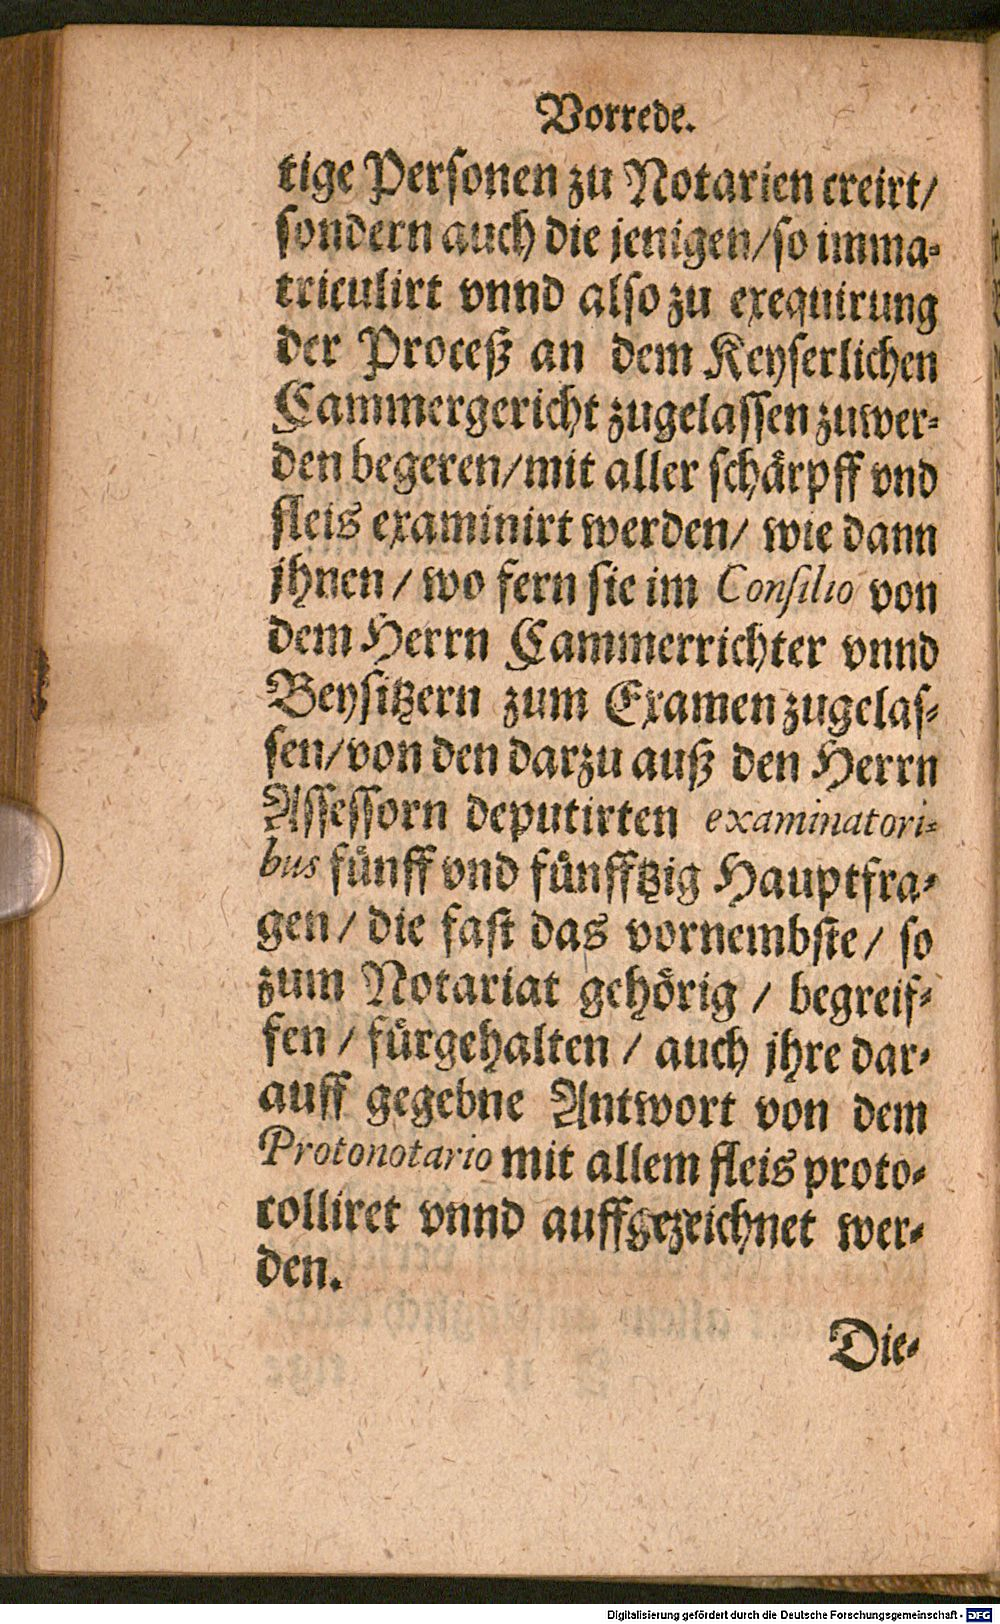 Vorrede.
tige Personen zu Notarien creirt/
sondern auch die jenigen/so imma-
triculirt vnnd also zu exequirung
der Proceß an dem Keyserlichen
Cammergericht zugelassen zuwer-
den begeren/mit aller schärpff vnd
fleis examinirt werden/ wie dann
jhnen / wo fern sie im Consilio von
dem Herrn Cammerrichter vnnd
Beysitzern zum Examen zugelas-
sen/von den darzu auß den Herrn
Assessorn deputirten examinatori-
bus fünff vnd fünfftzig Hauptfra-
gen / die fast das vornembste / so
zum Notariat gehörig / begreif-
fen / fürgehalten / auch jhre dar-
auff gegebne Antwort von dem
Protonotario mit allem fleis proto-
colliret vnnd auffgezeichnet wer-
den.
Die-
Digitalisierung gefördert durch die Deutsche Forschungsgemeinschaft - DFG